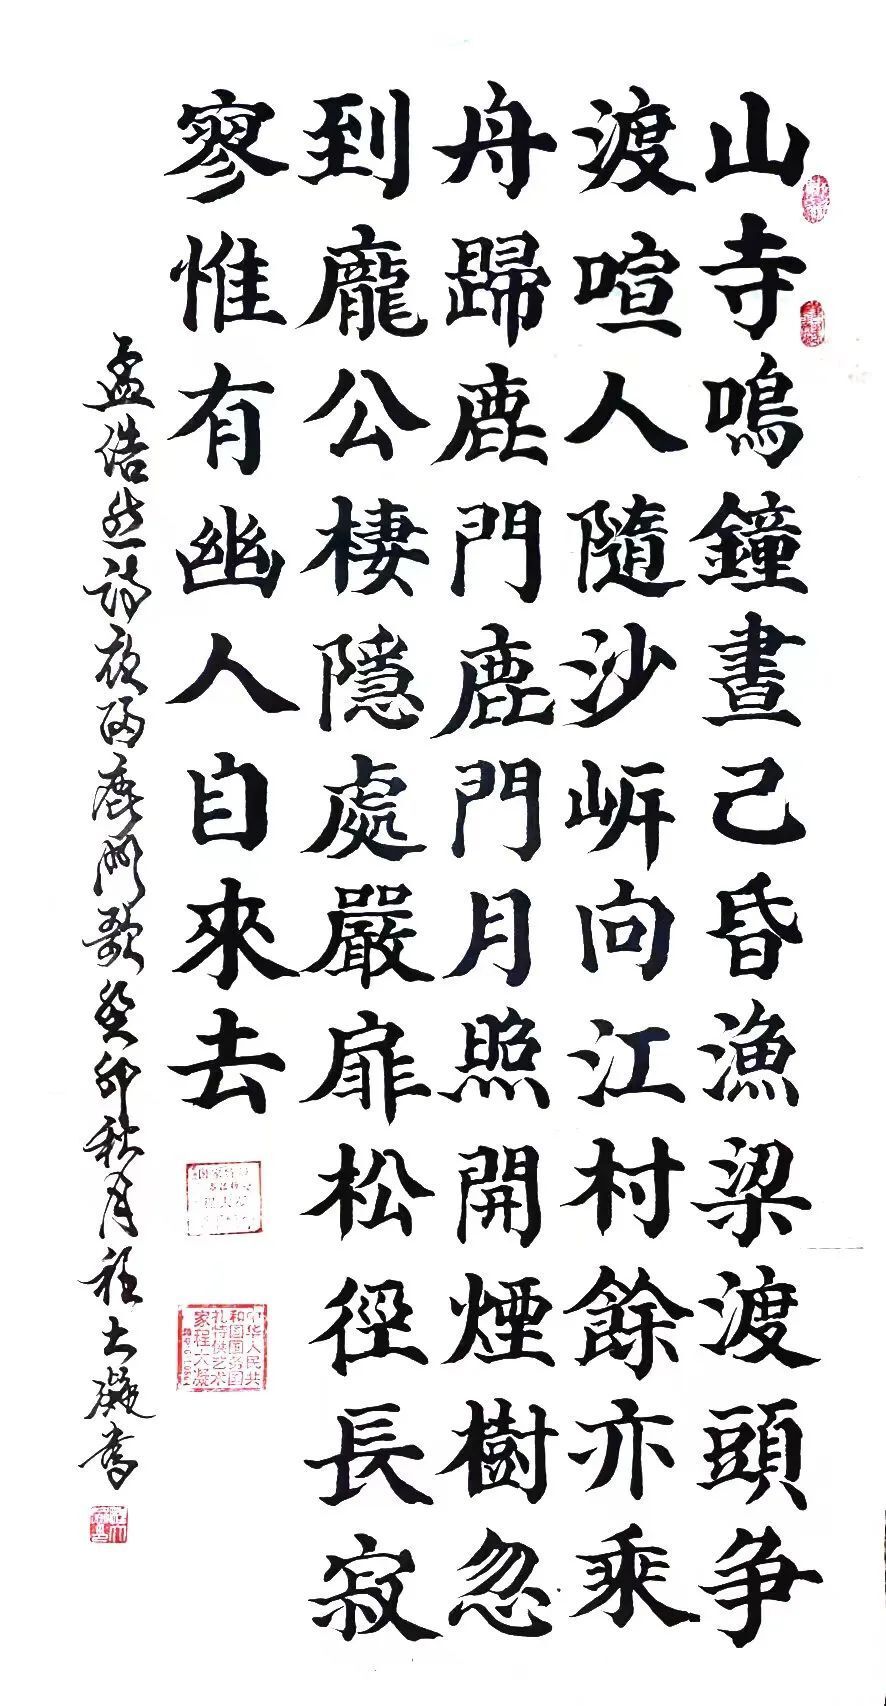 山寺鳴鐘晝己昏漁梁渡頭争
渡喧人隨沙岍向江村餘亦乘
舟歸鹿門鹿門月照開煙樹忽
到龐公棲隱處嚴扉松徑長寂
寥惟有幽人自來去
孟浩然詩夜歸鹿門歌癸卯秋月程大凝書
中华人民共
和国国务国
礼特供艺术
家程大凝